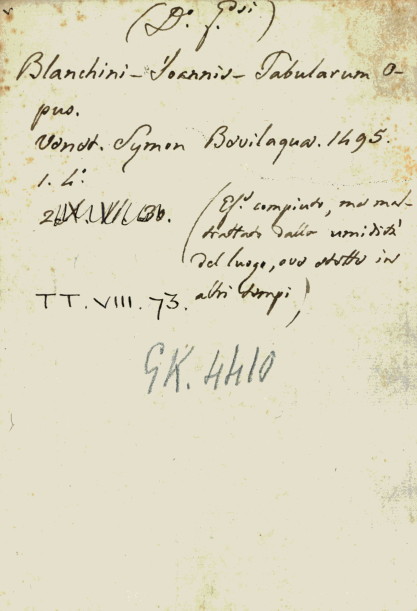 (Dº. Gsi)
Blanchini - Ioannis - Tabularum O-
pus.
Venet. Symon Bevilaqua. 1495.
1. 4º.
(Esº. compiuto, ma mal-
trattato dalla umidità
del luogo, ove stette in
altri tempi)
TT. VIII. 73.
GK. 4410